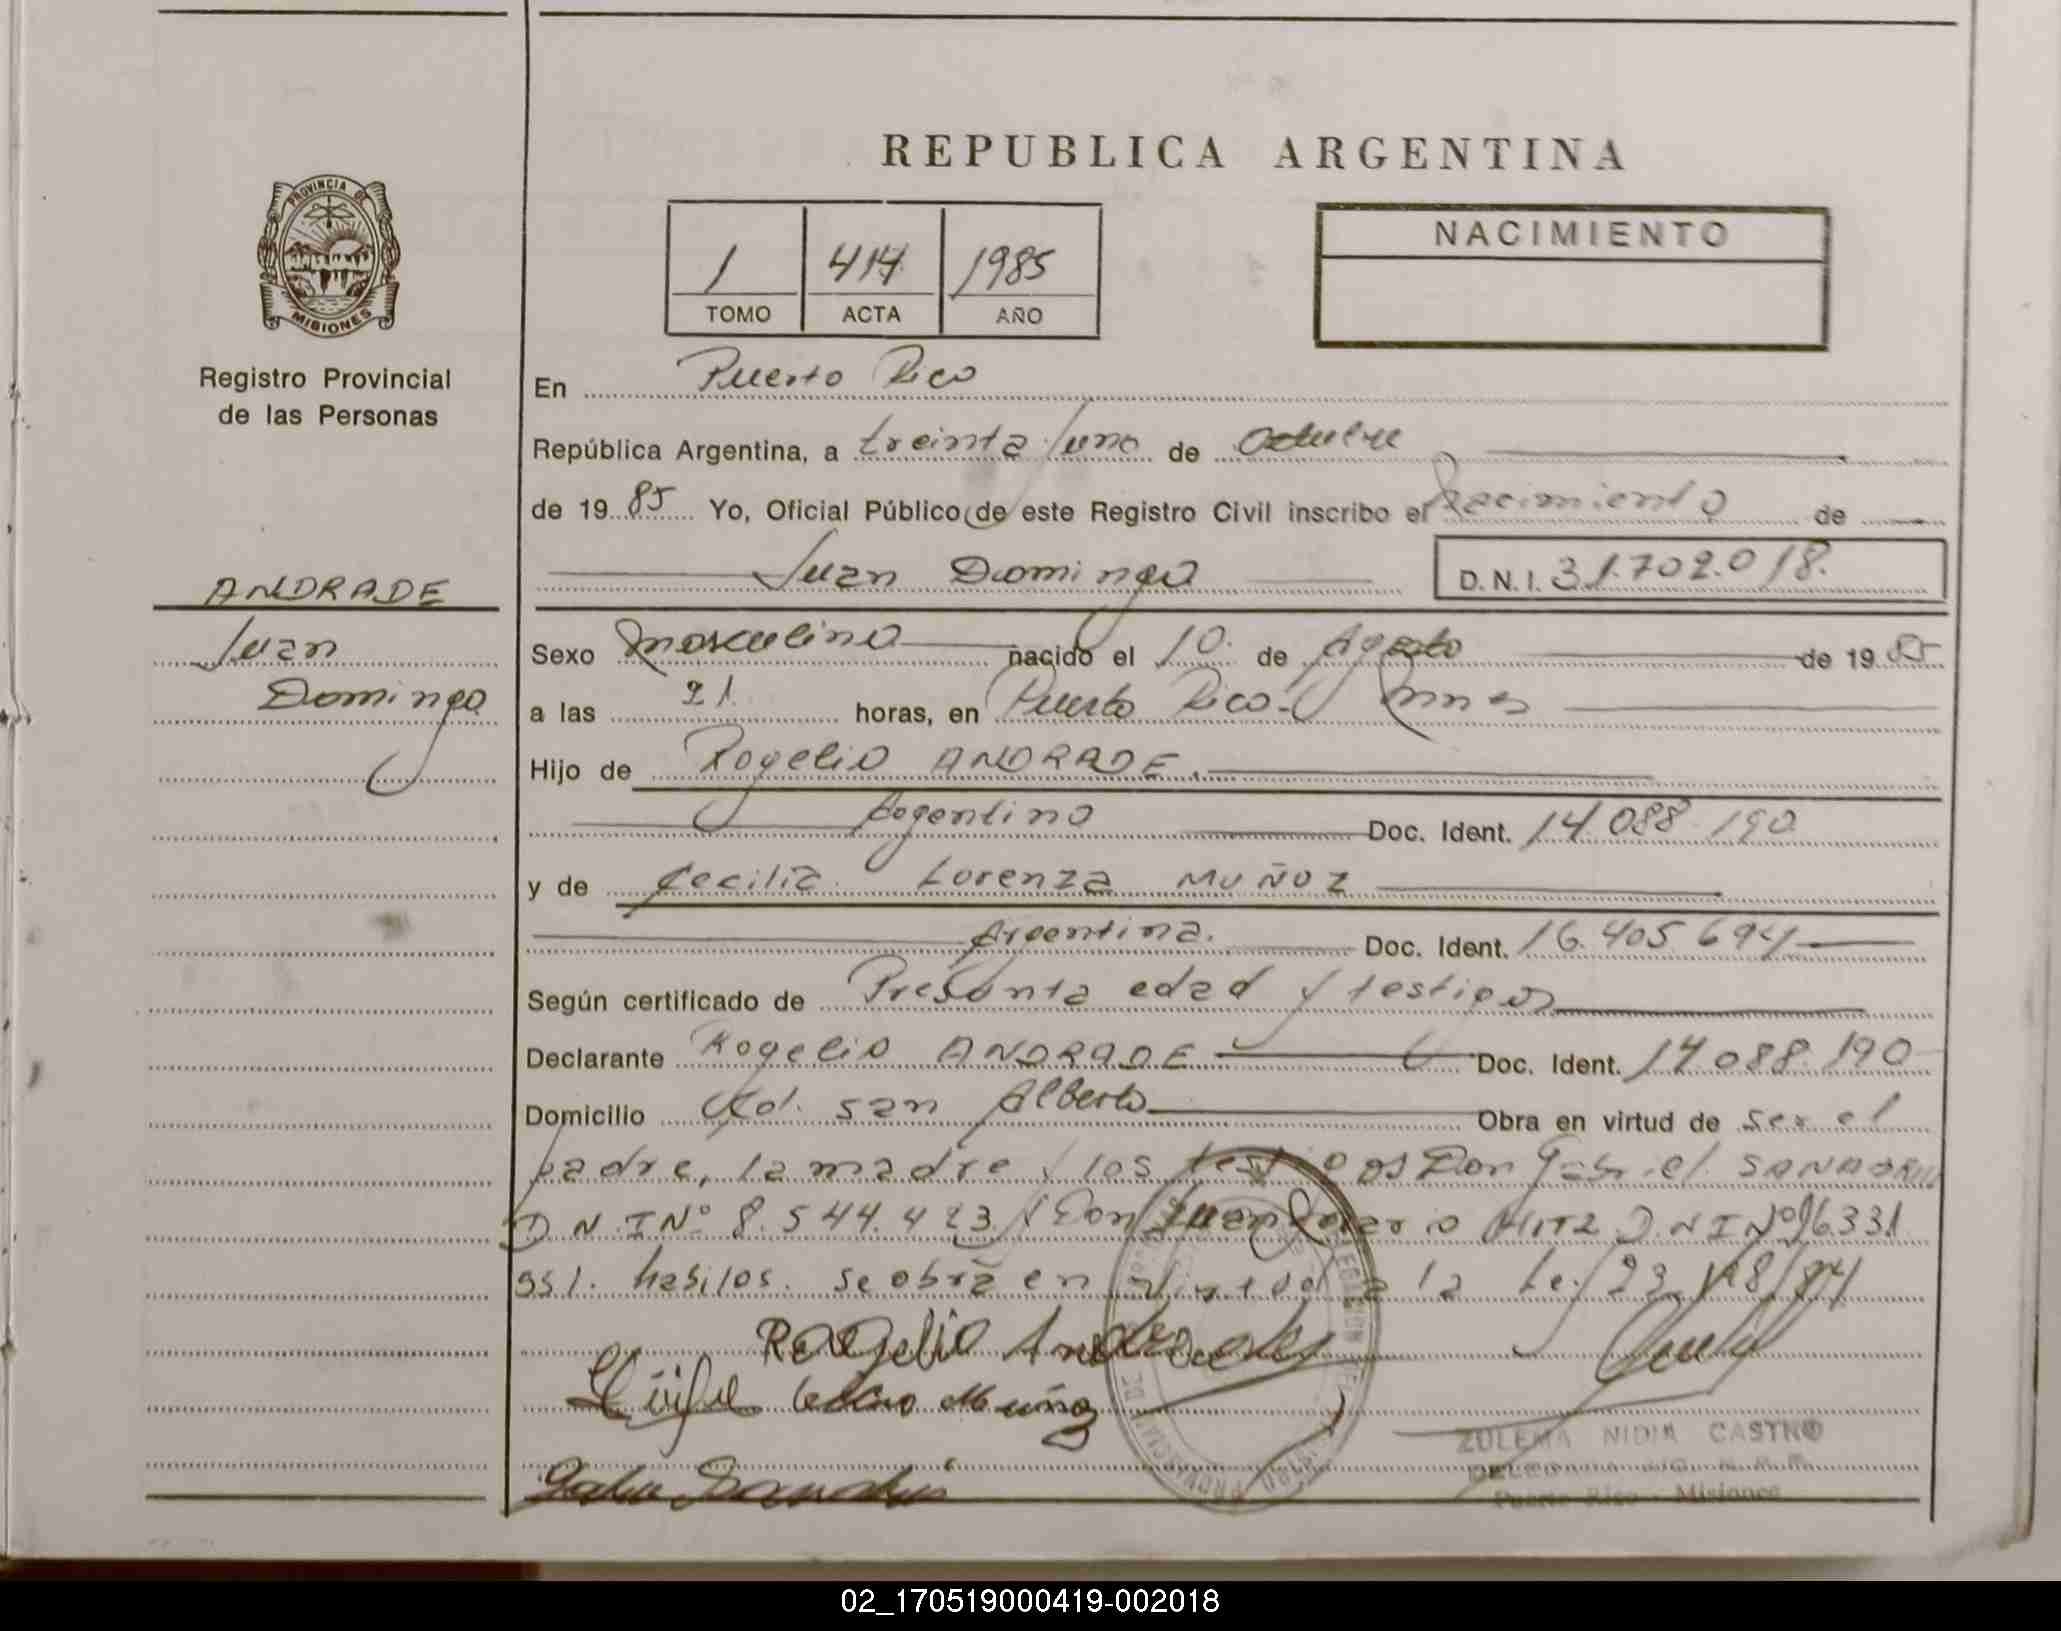 REPUBLICA ARGENTINA
PROVINCIA DE
MISIONES
Registro Provincial
de las Personas
1 414 1985
TOMO ACTA AÑO
NACIMIENTO
En Puerto Rico
República Argentina, a treinta y uno de Octubre
de 1985 Yo, Oficial Público de este Registro Civil inscribo el Nacimiento de
Juan Domingo D.N.I. 31.702.018.
ANDRADE
Juan
Domingo
Sexo masculino nacido el 10 de Agosto de 1985
a las 21 horas, en Puerto Rico - Mnes
Hijo de Rogelio ANDRADE.
Argentino Doc. Ident. 14.088.190
y de Cecilia Lorenza MUÑOZ
Argentina. Doc. Ident. 16.405.694
Según certificado de Presunta edad y testigos
Declarante Rogelio ANDRADE Doc. Ident. 14.088.190
Domicilio Col. San Alberto Obra en virtud de ser el
padre, la madre y los testigos Don Gabriel
D.N.I Nº 8.544.423 y Don Juan HITZ D.N.I Nº 16.331.
951. habilos. se obra en virtud a la Ley 23.128/84
Rogelio Andrade
Muñoz
ZULEMA NIDIA CASTRO
DELEGADA
Puerto Rico - Misiones
02_170519000419-002018